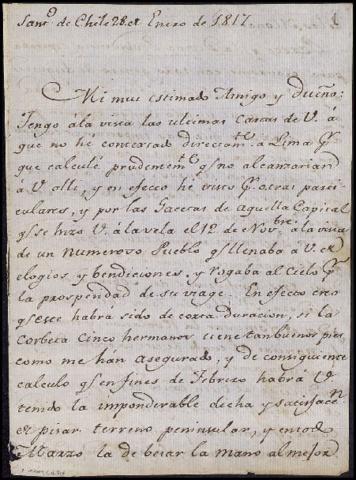 Sant.º de Chile 28. de Enero de 1817.
1
Mi muy estimado Amigo y dueño:
Tengo á la vista las ultimas cartas de V. á
que no hé contextado directam.te a Lima p.r
que calculé prudentem.te q.e no alcanzarian
á V. alli, y en efecto hé visto p.r otras parti-
culares, y por las Gacetas de aquella Capital
q.e se hizo V. á la vela el 12 de Nov.bre á la vista
de un numeroso Pueblo q.e llenaba á V. de
elogios y bendiciones, y rogaba al Cielo p.r
la prosperidad de su viage. En efecto creo
q.e este habrá sido de corta duracion, si la
Corbeta Cinco hermanos tiene tan buenos pies
como me han asegurado, y de consiguiente
calculo q.e en fines de Febrero habrá V.
tenido la imponderable dicha y satisfacc.n
de pisar terreno peninsular, y en todo
Marzo la de besar la mano al mejor